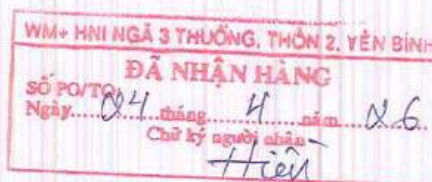 WM+ HNI NGÃ 3 THUỐNG, THÔN 2, YÊN BÌNH
ĐÃ NHẬN HÀNG
SỐ PO/TO:
Ngày 24 tháng 4 năm 26
Chữ ký người nhận
Hiền